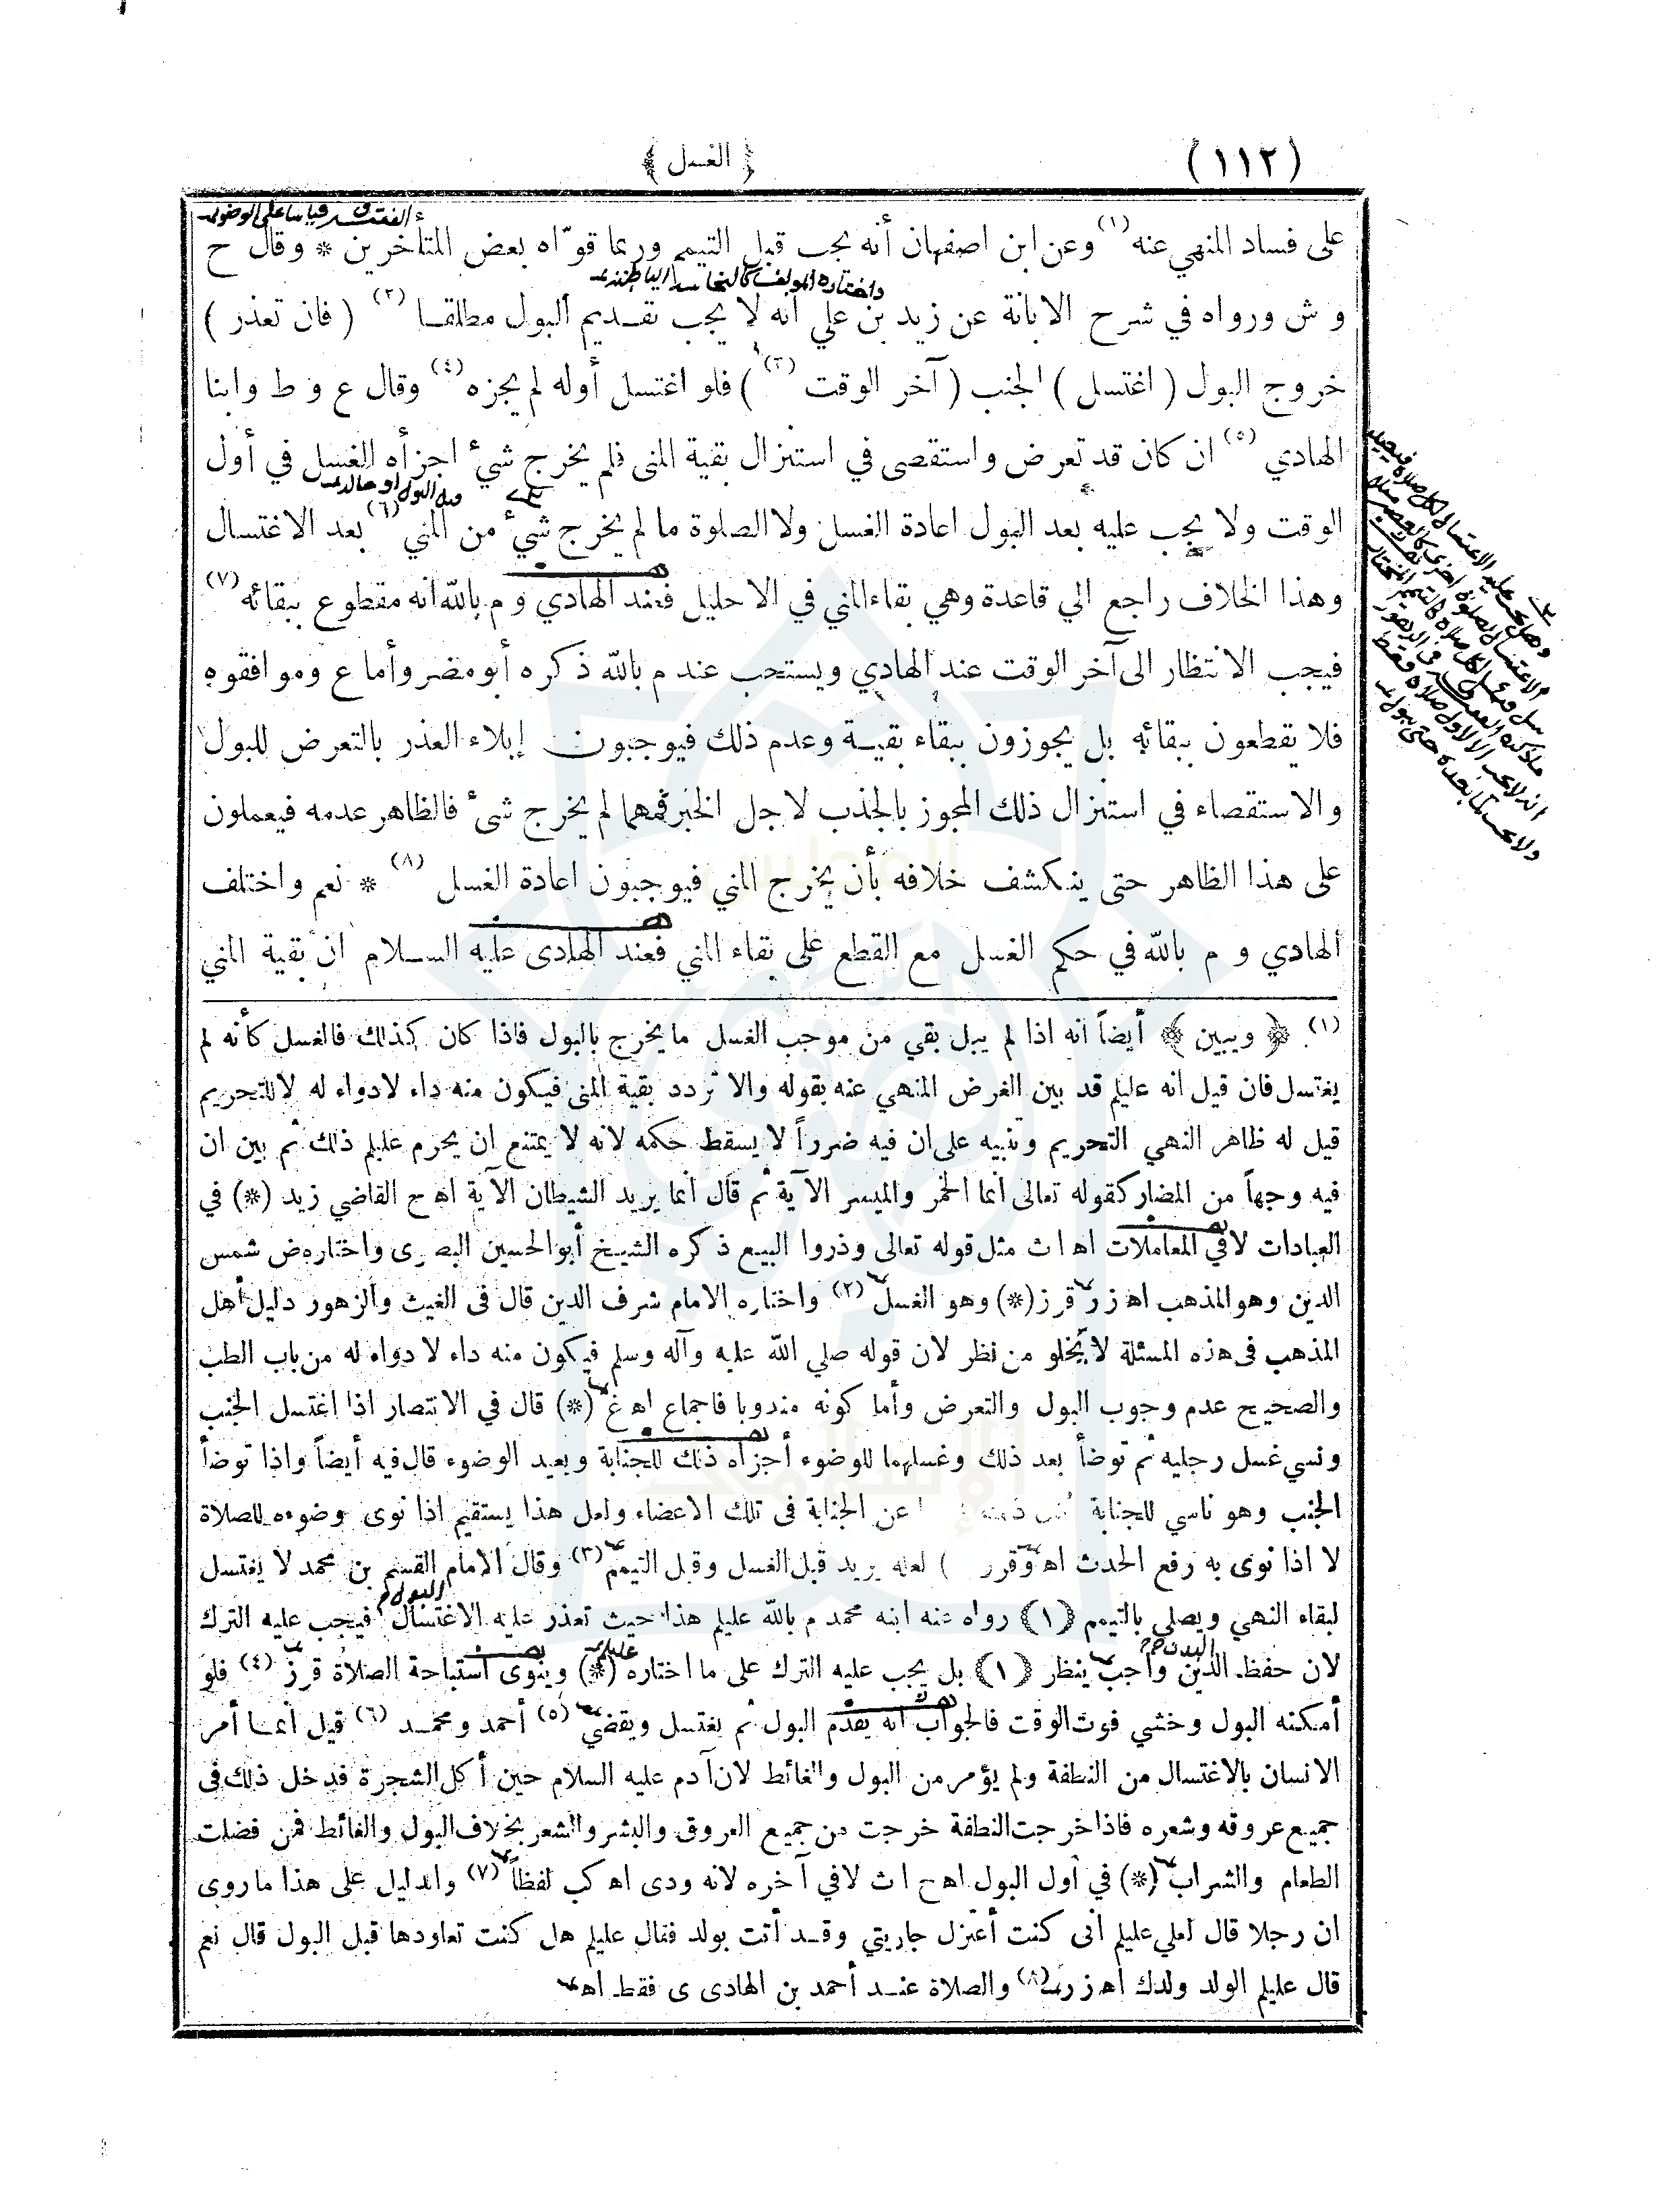 (١١٢)
﴿ الغسل ﴾
على فساد المنهي عنه (١) وعن ابن اصفهان أنه يجب قبل التيمم وربما قوّاه بعض المتاخرين * وقال ح
و ش ورواه في شرح الابانة عن زيد بن علي انه لا يجب تقديم البول مطلقا (٢) ( فان تعذر )
خروج البول ( اغتسل ) الجنب ( آخر الوقت (٣) ) فلو اغتسل أوله لم يجزه (٤) وقال ع و ط وابنا
الهادي (٥) ان كان قد تعرض واستقصى في استنزال بقية المنى فلم يخرج شئ اجزأه الغسل في أول
الوقت ولا يجب عليه بعد البول اعادة الغسل ولا الصلوة ما لم يخرج شئ من المني (٦) بعد الاغتسال
وهذا الخلاف راجع الي قاعدة وهي بقاء المني في الاحليل فعند الهادي و م بالله انه مقطوع ببقائه (٧)
فيجب الانتظار الى آخر الوقت عند الهادي ويستحب عند م بالله ذكره أبو مضر وأما ع وموافقوه
فلا يقطعون ببقائه بل يجوزون ببقاء بقية وعدم ذلك فيوجبون إبلاء العذر بالتعرض للبول
والاستقصاء في استنزال ذلك المجوز بالجذب لاجل الخبر فمهما لم يخرج شئ فالظاهر عدمه فيعملون
على هذا الظاهر حتى ينكشف خلافه بأن يخرج المني فيوجبون اعادة الغسل (٨) * نعم واختلف
الهادي و م بالله في حكم الغسل مع القطع على بقاء المني فعند الهادى عليه السلام ان بقية المني
(١) ﴿ ويبين ﴾ أيضاً انه اذا لم يبل بقي من موجب الغسل ما يخرج بالبول فاذا كان كذلك فالغسل كأنه لم
يغتسل فان قيل انه عليلم قد بين الغرض المنهي عنه بقوله والا تردد بقية المنى فيكون منه داء لا دواء له لا للتحريم
قيل له ظاهر النهي التحريم وتنبيه على ان فيه ضرراً لا يسقط حكمه لانه لا يمتنع ان يحرم عليلم ذلك ثم بين ان
فيه وجهاً من المضار كقوله تعالى انما الخمر والميسر الآية ثم قال انما يريد الشيطان الآية اه ح القاضي زيد (*) في
العبادات لا في المعاملات اه اث مثل قوله تعالى وذروا البيع ذكره الشيخ أبو الحسين البصرى واختاره ض شمس
الدين وهو المذهب اه زر قرز (*) وهو الغسل (٢) واختاره الامام شرف الدين قال فى الغيث والزهور دليل أهل
المذهب فى هذه المسئلة لا يخلو من نظر لان قوله صلي الله عليه وآله وسلم فيكون منه داء لا دواء له من باب الطب
والصحيح عدم وجوب البول والتعرض وأما كونه مندوبا فاجماع اه غ (*) قال في الانتصار اذا اغتسل الجنب
ونسي غسل رجليه ثم توضأ بعد ذلك وغسلهما للوضوء أجزاه ذلك للجنابة ويعيد الوضوء قال فيه أيضاً واذا توضأ
الجنب وهو ناسي للجنابة عن الجنابة فى تلك الاعضاء ولعل هذا يستقيم اذا نوى وضوءه للصلاة
لا اذا نوى به رفع الحدث اه وقرر ) لعله يريد قبل الغسل وقبل التيمم (٣) وقال الامام القسم بن محمد لا يغتسل
لبقاء النهي ويصلى بالتيمم (١) رواه عنه ابنه محمد م بالله عليلم هذا حيث تعذر عليه الاغتسال فيجب عليه الترك
لان حفظ الدين واجب ينظر (١) بل يجب عليه الترك على ما اختاره (*) وينوى استباحة الصلاة قرز (٤) فلو
أمكنه البول وخشي فوت الوقت فالجواب انه يقدم البول ثم يغتسل ويقضي (٥) أحمد ومحمد (٦) قيل انما أمر
الانسان بالاغتسال من النطفة ولم يؤمر من البول والغائط لان آدم عليه السلام حين أكل الشجرة فدخل ذلك فى
جميع عروقه وشعره فاذا خرجت النطفة خرجت من جميع العروق والبشر والشعر بخلاف البول والغائط فمن فضلت
الطعام والشراب (*) في أول البول اه ح اث لا في آخره لانه ودى اه كب لفظاً (٧) والدليل على هذا ما روى
ان رجلا قال لعلي عليلم انى كنت أعتزل جاريتي وقد أتت بولد فقال عليلم هل كنت تعاودها قبل البول قال نعم
قال عليلم الولد ولدك اه زر (٨) والصلاة عند أحمد بن الهادى ى فقط اه